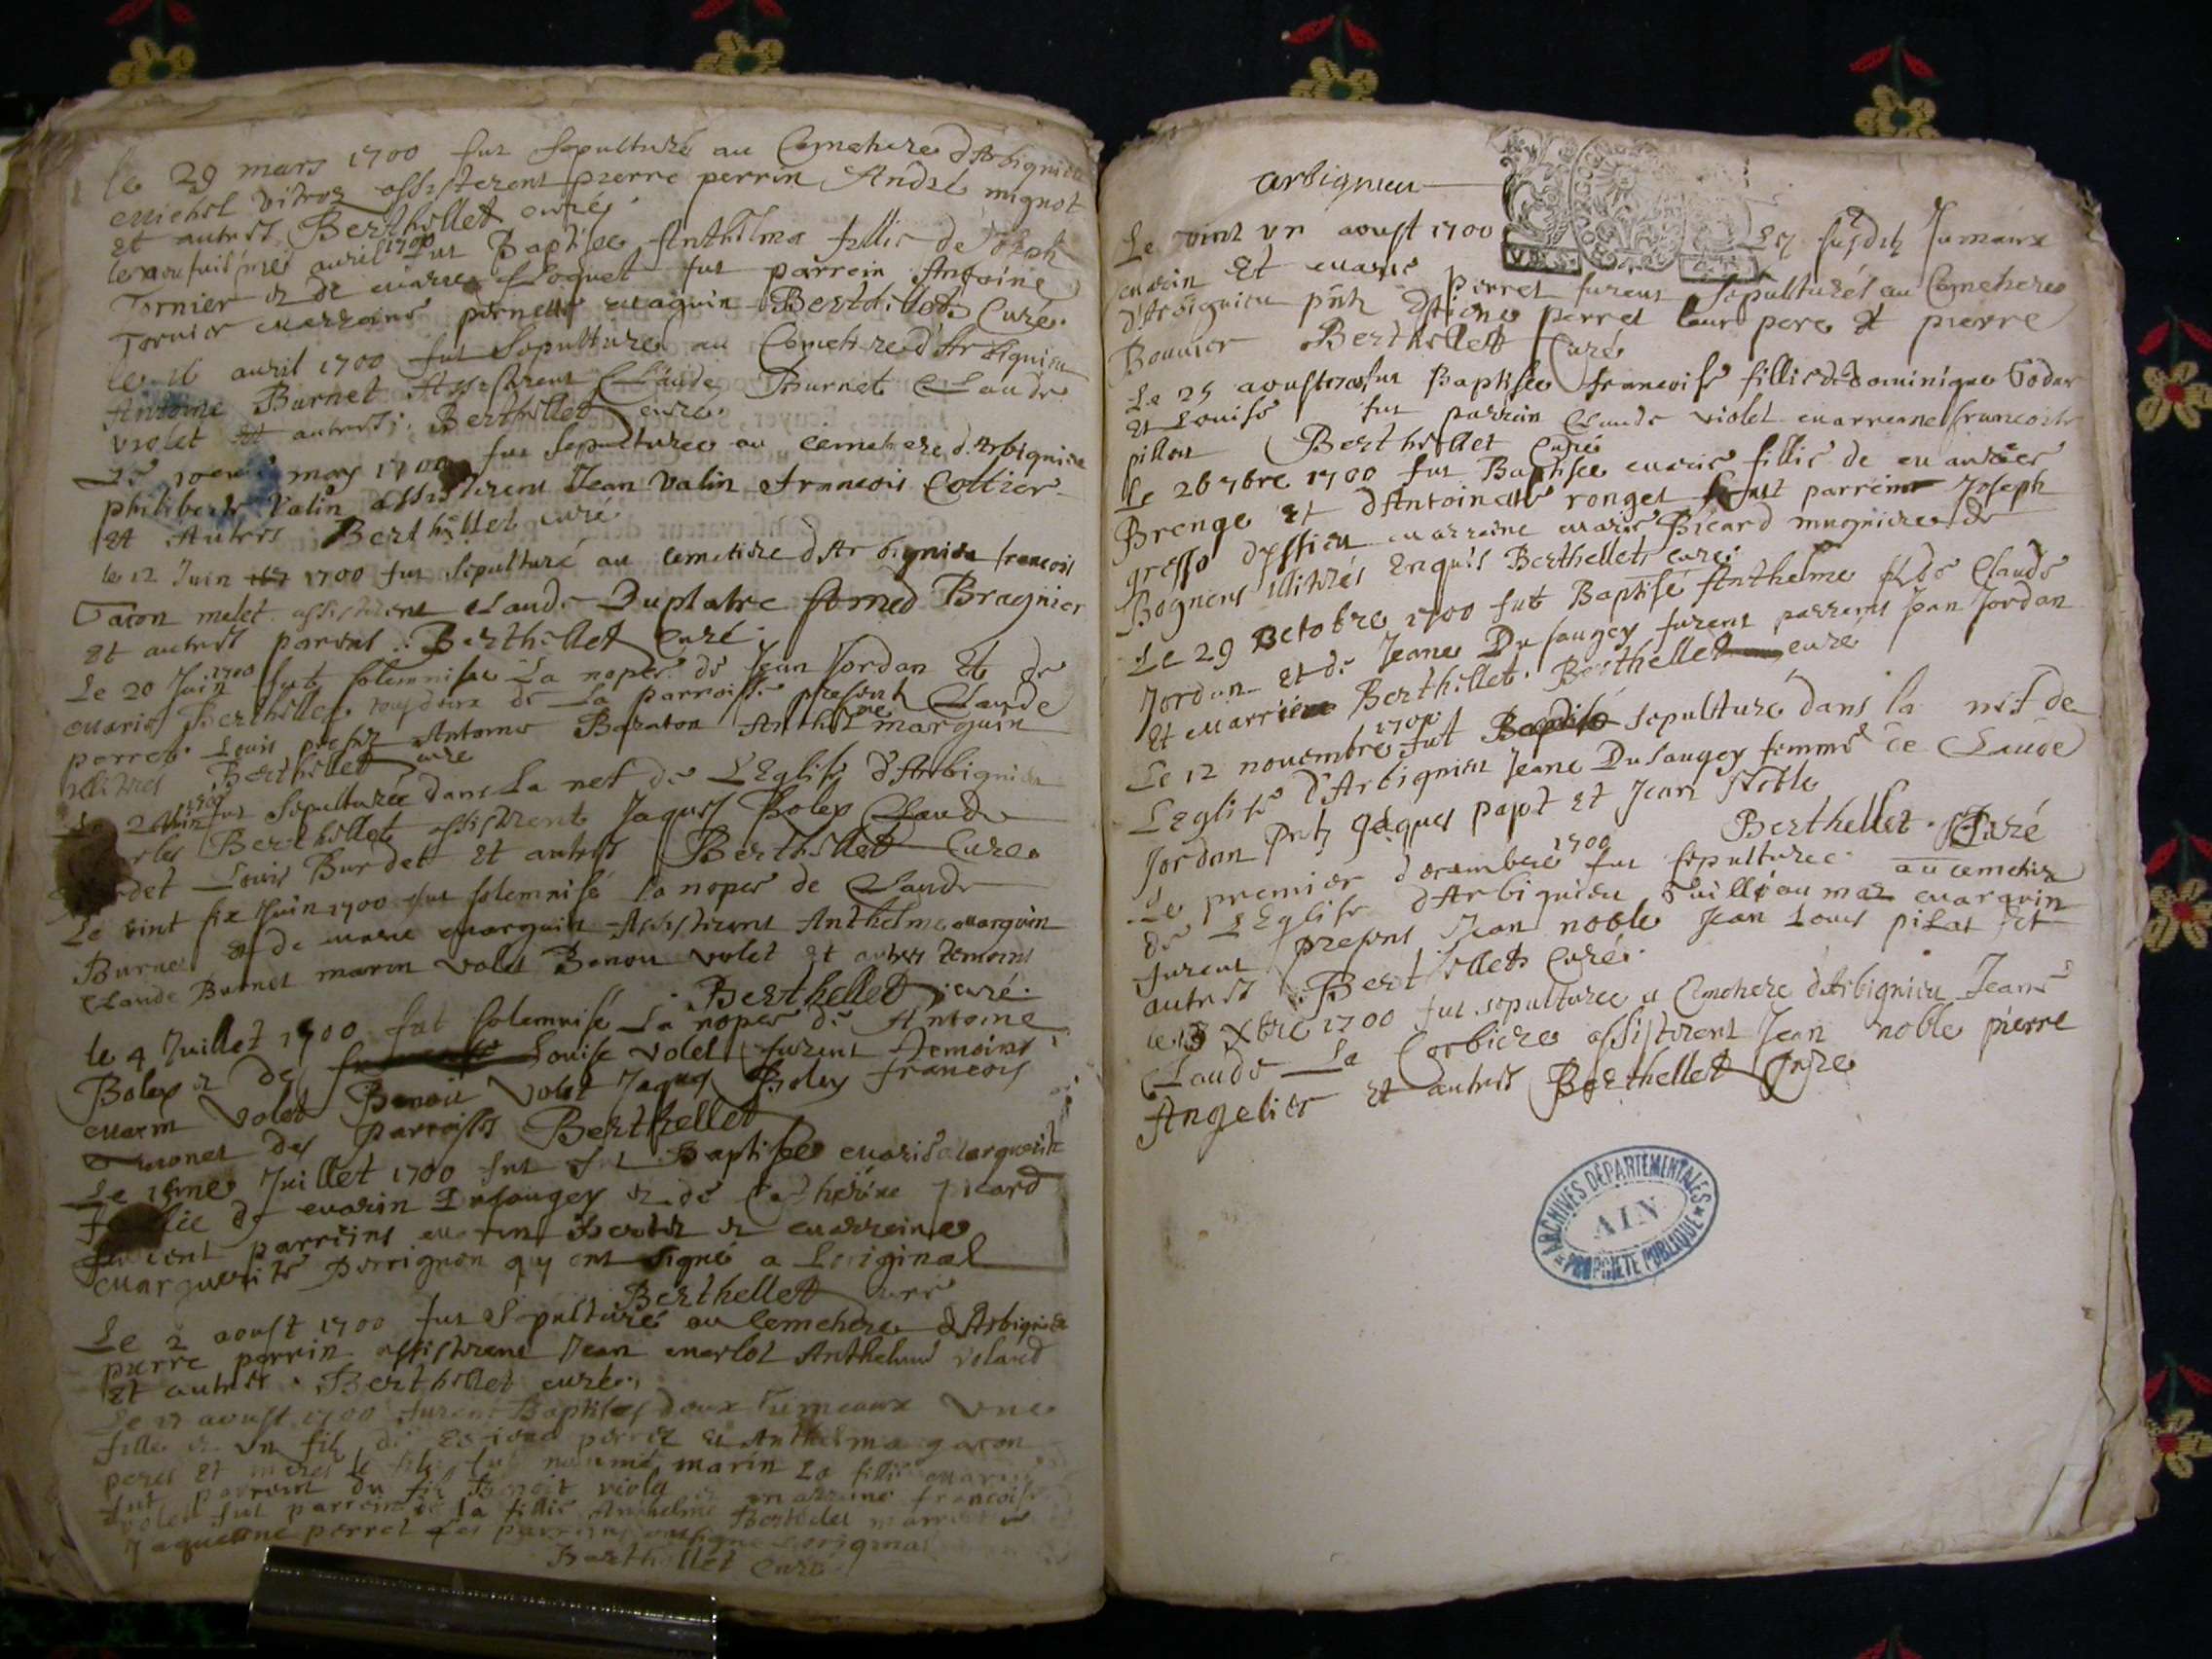 le 29 mars 1700 fut sepulturé au Cemetiere d'Arbignieu
michel vitroz assisterent pierre perrin André mignot
Et autres Berthellet curé
avril 1700 fut Baptisee Anthelma fillie de Joseph
Tornier & de marie floquet fut parrein Antoine
Tornier marraine pernette maguin Berthellet Curé
le 16 avril 1700 fut Sepulturé au Cemetire d'Arbignieu
Antoine Burnet Assisterent Claude Burnet Claude
violet Et autres. Berthellet curé.
may 1700 fut Sepulturee au cemetiere d'Arbignieu
philiberte Valin assisterent Jean Valin francois Cottier
Et Autres Berthellet curé
le 12 Juin 1700 fut sepulturé au cemetiere d'Arbignieu francois
Tacon melet assisterent Claude Duplatre Bragnier
Et autres parens. Berthellet Curé.
Le 20 Juin 1700 fut solemnisee La nopce de Jean Jordan Et de
marie Berthellet tous deux de La parroisse presents Claude
perret Louis Antoine Baraton Anthelme marguin
illitres Berthellet cure
1700 fut sepulturée dans La nef de L'Eglise d'Arbignieu
Berthellet assisterent Jaques Bolex Claude
Burdet Louis Burdet Et autres Berthellet Cure
Le vint six Juin 1700 fut solemnisé la nopce de Claude
Burnet & de marie marguin Assisterent Anthelme marguin
Claude Burnet marin volet Benoit volet Et autres temoins
Berthellet curé.
le 4 Juillet 1700 fut solemnisé La nopce de Antoine
Bolex & de Louise volet furent temoins
marin volet Benoit volet Jaques Bolex francois
des parroisses Berthellet
Le Juillet 1700 fut Baptisee marie marguerite
fillie de marin Dusaugey & de Catherine picard
furent parreins & marreine
marguerite perrignon qui ont signé a Loriginal
Berthellet curé
Le 2 aoust 1700 fut Sepulturé au Cemetiere d'Arbignieu
pierre perrin assisterent Jean merlot Anthelme volard
Et autres. Berthellet curé.
Le aoust 1700 furent Baptises deux Jumeaux une
fille & un filz de Estiene perret Et Anthelma gacon
peres Et meres le filz fut nommé marin La fillie marie
fut parrein du filz Benoit viola & marraine francoise
volet fut parrein de la fillie Anthelme marreine
Jaquemine perret Les parreins ont signé Loriginal
Berthellet Curé
arbignieu
Le vint un aoust 1700 Les susditz Jumeaux
marin Et marie perret furent Sepulturés au Cemetiere
d'Arbignieu pntz Estiene perret leur pere Et pierre
Bouvier Berthellet Curé
Le 25 aoust 1700 fut Baptisee francoise fillie de dominique Godar
Et Louise fut parrein Claude violet marreane francoise
pillon Berthellet Curé
Le 26 7bre 1700 fut Baptisee marie fillie de
Brenge Et d'Antoinette ronget fut parrein Joseph
gresso d'yssieu marraine marie Picard mugniere de
Bognens illitrés Enquis Berthellet curé.
Le 29 Octobre 1700 fut Baptisé Anthelme filz de Claude
Jordan Et de Jeane Dusaugey furent parreins Jean Jordan
Et marriene Berthellet. Berthellet curé
Le 12 novembre 1700 fut sepulturé dans la nef de
L'Eglise d'Arbignieu Jeane Dusaugey femme de Claude
Jordan pntz Jaques pajot Et Jean Noble
Berthellet Curé
Le premier decembre 1700 fut sepulturee au cemetire
de L'Eglise d'Arbignieu Guilliauma marguin
furent presens Jean noble Jean Louis pilat Et
autres Berthellet Curé.
le Xbre 1700 fut sepulturee a Cemetiere d'Arbignieu Jeane
Claude La Corbiere assisterent Jean noble pierre
Angelier Et autres Berthellet Cure
ARCHIVES DÉPARTEMENTALES
AIN
PROPRIÉTÉ PUBLIQUE